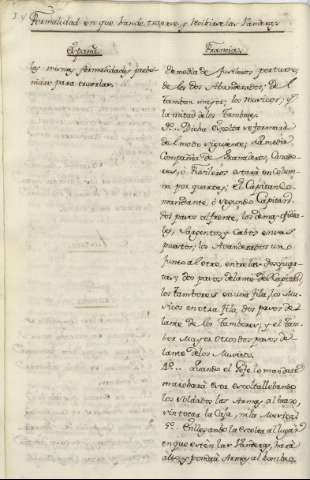 Formalidad en que han de traerse, y recibirse las Vanderas
España
Francia
Las mismas formalidades
para executar.
de media de fusileros por turno,
de los dos Abanderados; del
tambor mayor; los musicos; y
la mitad de los tambores.
3º... Dicha Escolta se formará
del modo siguiente; la media
Compañia de Granaderos, Cazado-
res, ó Fusileros estará en colum-
na por quartas; el Capitan Co-
mandante, ó segundo Capitan
dos pasos al frente, los demas oficia-
les, Sargentos y Cabos en sus
puestos; los Abanderados uno
junto al otro, entre las dos quar-
tas y dos pasos delante del Capitan;
los tambores en una fila, los Mu-
sicos en otra fila, dos pasos de-
lante de los tambores, y el tam-
bor Mayor otros dos pasos de-
lante de los Musicos.
4º... Quando el Gefe lo mandare
marchará esta escolta llebando
los soldados las Armas al brazo,
sin tocar la Caja, ni la Musica.
5º. En llegando la Escolta al lugar
en que esten las Vanderas, hará
alto, y pondrá Armas al hombro,